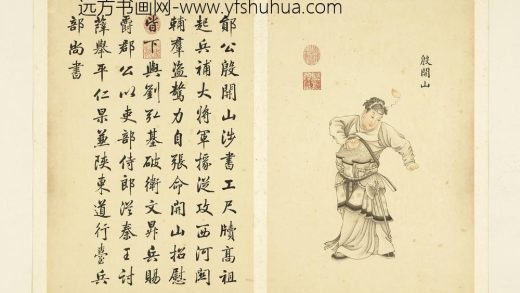 远方书画网-www.yfshuhua.com
殷開山
鄖公殷開山涉書工尺牘高祖
起兵補大將軍掾從攻西河闗
輔羣盜驁力自張命開山招慰
皆下與劉弘基破衛文昇兵賜
爵郡公以吏部侍郎從秦王討
薛舉平仁杲兼陝東道行臺兵
部尚書